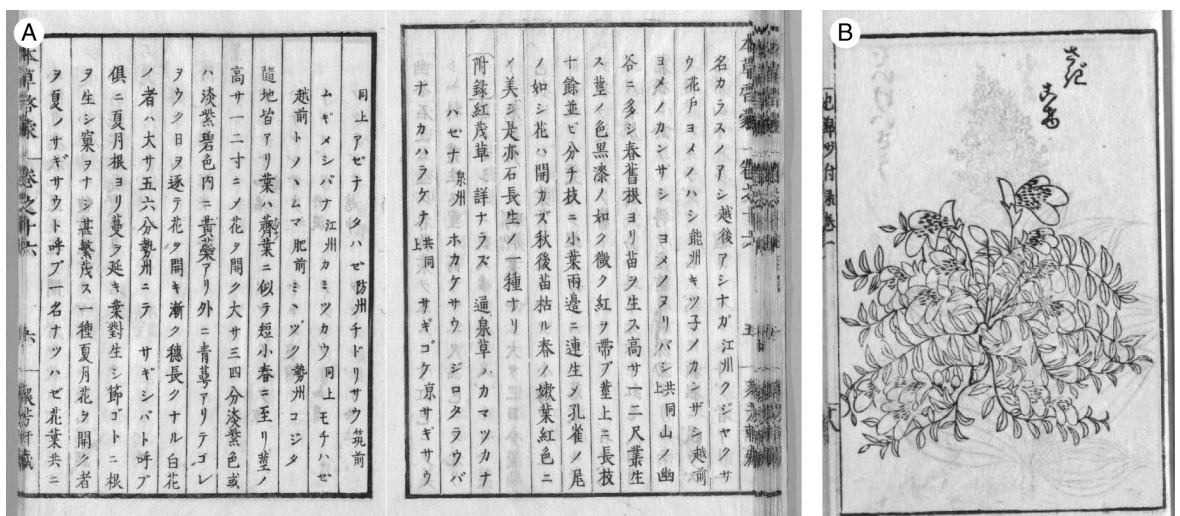 A
名カラスノアシ越後アシナガ江州クジヤクサ
ウ花戸ヨメノハシ能州キツ子ノカンザシ越前
ヨメノカンサシ同上ヨメノヌリバシ共同上山ノ幽
谷ニ多シ春舊根ヨリ苗ヲ生ス高サ一二尺叢生
ス莖ノ色黒漆ノ如ク微ク紅ヲ帶ブ莖上ニ長枝
十餘並ビ分チ枝ニ小葉兩邉ニ連生ノ孔雀ノ尾
ノ如シ花ハ開カズ秋後苗枯ル春ノ嫩葉紅色ニ
ノ美シ是亦石長生ノ一種ナリ
附録紅茂草 詳ナラズ 通泉草 ノカマツカナ
ハゼナ泉州 ホカケサウ ジロタラウバ
ナ カハラケナ共同上 サギゴケ京サギサウ
同上アゼナ タハゼ防州チドリサウ筑前
ムギメシバナ江州カミツカウ同上 モチハゼ
越前トノヽムマ肥前ミヽヅク勢州コジタ
隨地皆アリ葉ハ薺葉ニ似テ短小春ニ至リ莖ノ
高サ一二寸ニノ花ヲ開ク大サ三四分淡紫色或
ハ淡紫碧色内ニ黃蘂アリ外ニ青萼アリテコレ
ヲウク日ヲ逐テ花ヲ開キ漸ク穗長クナル白花
ノ者ハ大サ五六分勢州ニテ サギシバト呼ブ
倶ニ夏月根ヨリ蔓ヲ延キ葉對生シ節ゴトニ根
ヲ生シ窠ヲナシ甚繁茂ス一種夏月花ヲ開ク者
ヲ夏ノサギサウト呼ブ一名ナツハゼ花葉共ニ
本草啓蒙 卷之十六 六
B
さぎ